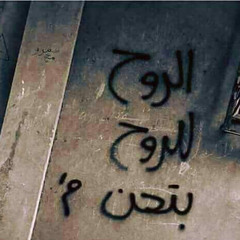 الروح
للروح
بتحن م'